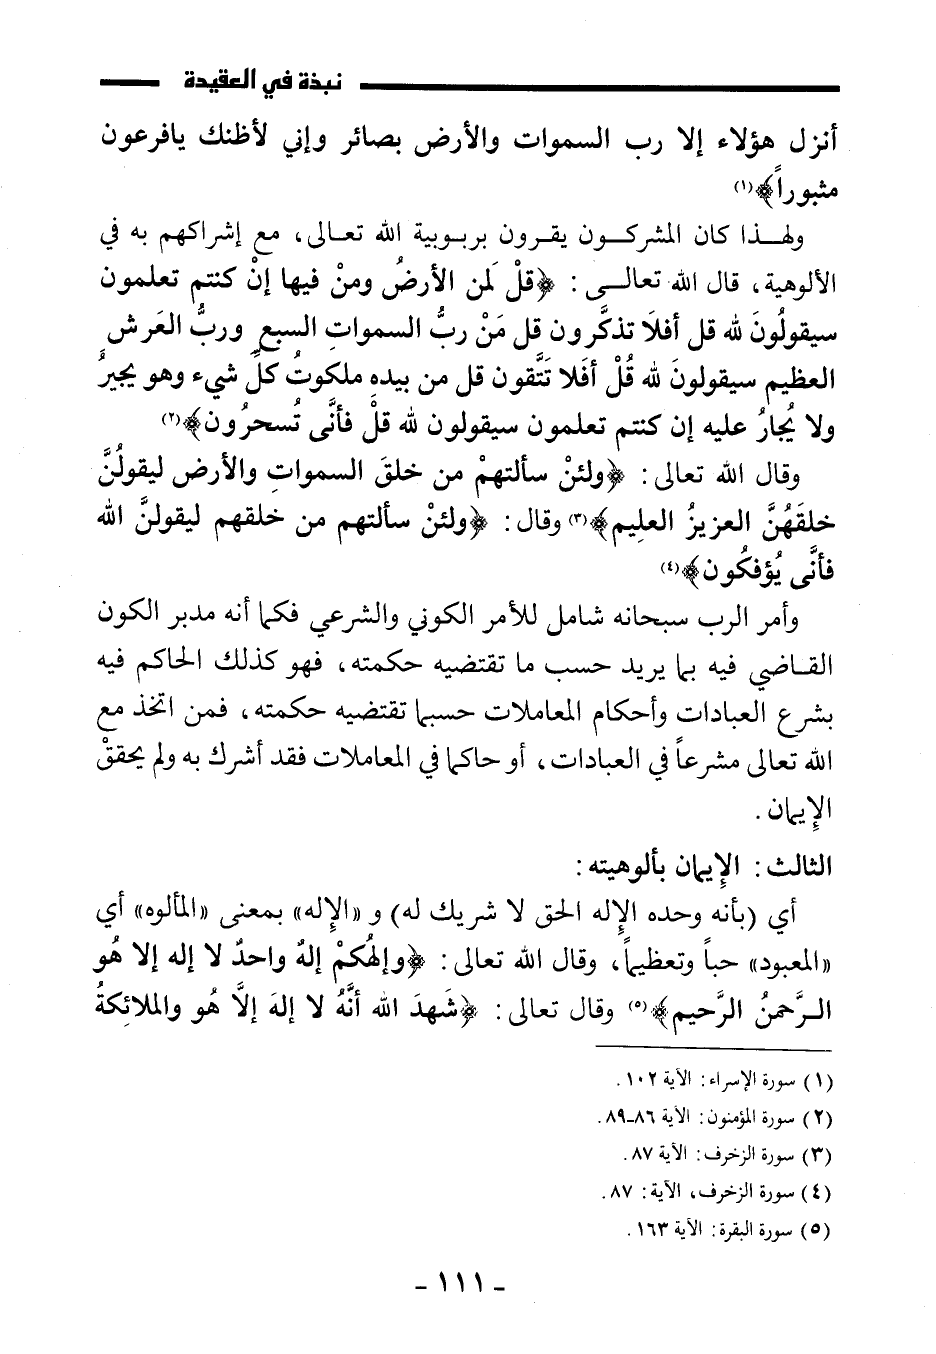 نبذة في العقيدة
أنزل هؤلاء إلا رب السموات والأرض بصائر وإني لأظنك يافرعون
مثبوراً﴾(١)
ولهـذا كان المشركـون يقـرون بربـوبية الله تعـالى، مع إشراكهم به في
الألوهية، قال الله تعالـى : ﴿قلْ لَمن الأرضُ ومنْ فيها إنْ كنتم تعلمون
سيقولُونَ لله قل أفلَا تذكَّرون قل مَنْ ربُّ السمواتِ السبعِ وربُّ العَرش
العظيم سيقولونَ لله قُلْ أفَلا تَتَّقون قل من بيدهِ ملكوتُ كلِّ شيء وهو يجيرُ
ولا يُجارُ عليه إن كنتم تعلمون سيقولون لله قلْ فأنَّى تُسحرُون﴾(٢)
وقال الله تعالى: ﴿ولئنْ سألتهمْ من خلقَ السمواتِ والأرض ليقولُنَّ
خلقَهُنَّ العزيزُ العلِيم﴾(٣) وقال: ﴿ولئنْ سألتهم من خلقهم ليقولنَّ الله
فأنَّى يُؤفكُون﴾(٤)
وأمر الرب سبحانه شامل للأمر الكوني والشرعي فكما أنه مدبر الكون
القـاضي فيه بما يريد حسب ما تقتضيه حكمته، فهو كذلك الحاكم فيه
بشرع العبادات وأحكام المعاملات حسبما تقتضيه حكمته، فمن اتخذ مع
الله تعالى مشرعاً في العبادات، أو حاكما في المعاملات فقد أشرك به ولم يحققْ
الإيمان .
الثالث: الإيمان بألوهيته:
أي (بأنه وحده الإله الحق لا شريك له) و «الإله» بمعنى «المألوه» أي
«المعبود» حباً وتعظيما، وقال الله تعالى: ﴿وإلهُكمْ إلهٌ واحدٌ لا إله إلا هُو
الـرَّحمنُ الرَّحيم﴾(٥) وقال تعالى: ﴿شَهدَ الله أنَّهُ لا إلهَ إلَّا هُو والملائِكةُ
(١) سورة الإسراء: الآية ١٠٢.
(٢) سورة المؤمنون: الآية ٨٦-٨٩.
(٣) سورة الزخرف: الآية ٨٧.
(٤) سورة الزخرف، الآية: ٨٧.
(٥) سورة البقرة: الآية ١٦٣.
- ١١١ -